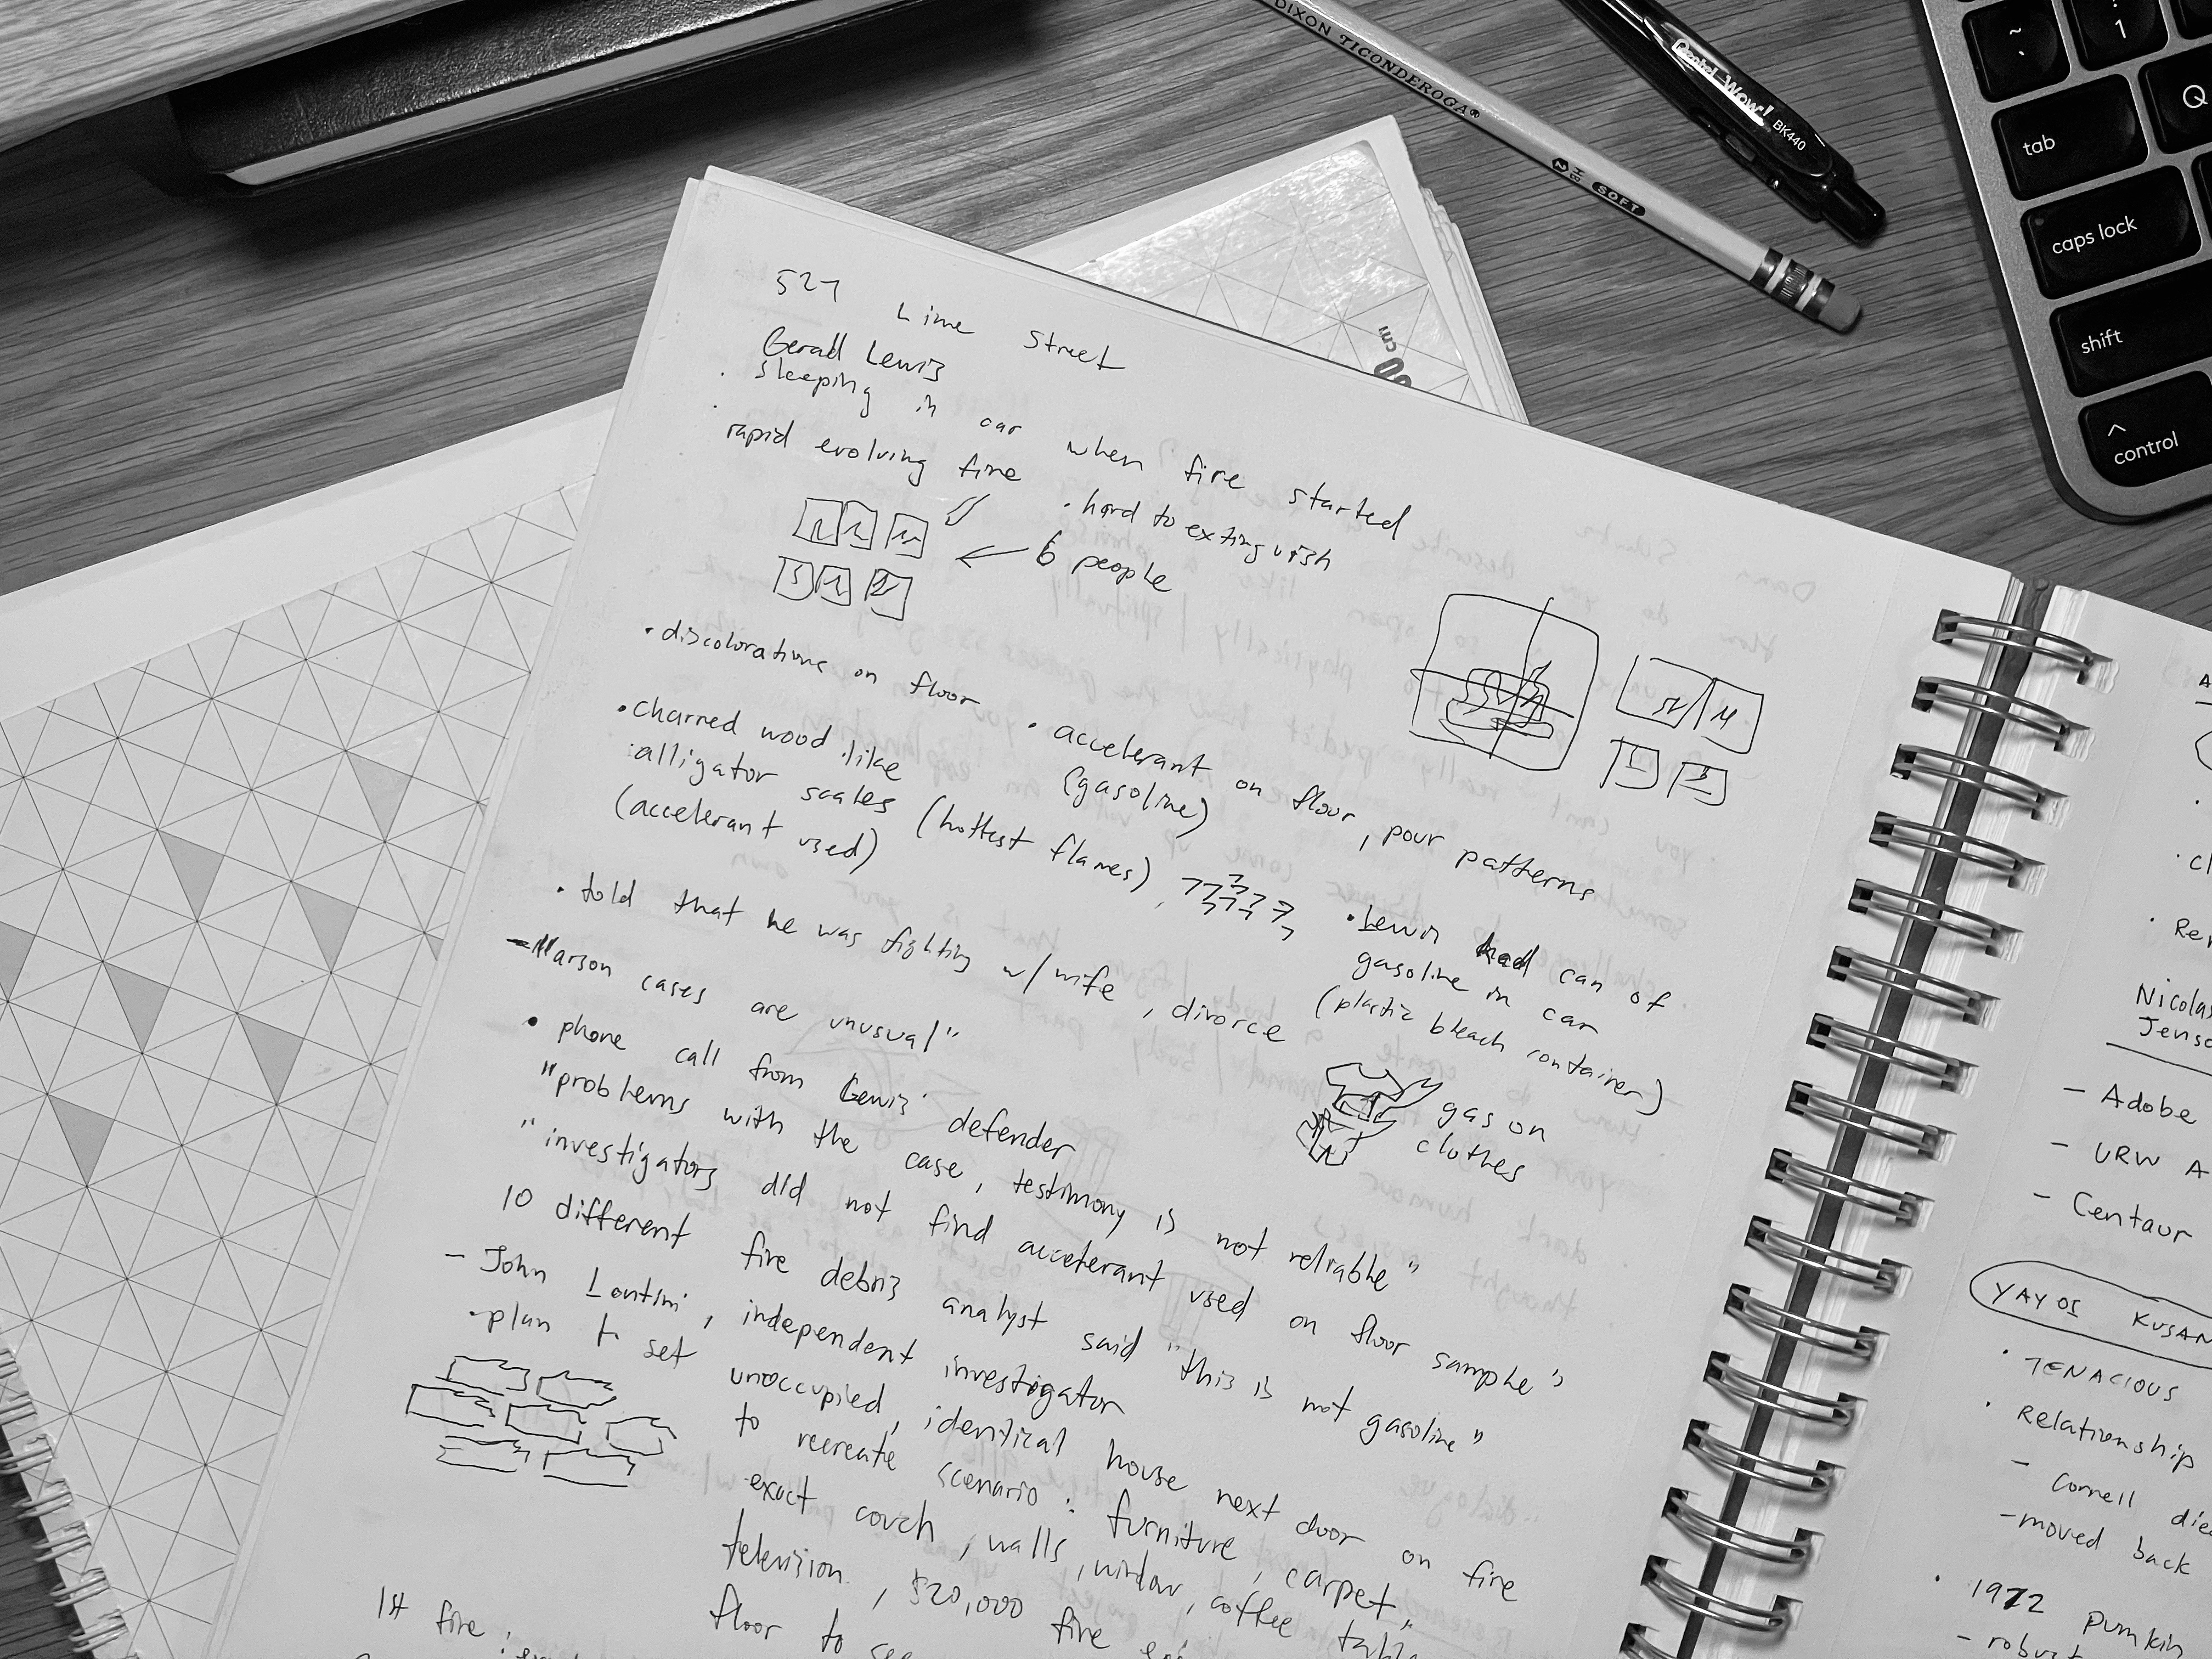 527 Lime Street
Gerald Lewis
• sleeping in car when fire started
• rapid evolving fire
• hard to extinguish
6 people
• discolorations on floor
• accelerant on floor, pour patterns
(gasoline)
• charred wood like
alligator scales (hottest flames),
(accelerant used)
• Lewis had can of
gasoline in car
(plastic bleach container)
gas on
clothes
• told that he was fighting w/ wife, divorce
- "arson cases are unusual"
• phone call from Lewis' defender
"problems with the case, testimony is not reliable"
"investigators did not find accelerant used on floor sample"
10 different fire debris analyst said "this is not gasoline"
- John Lentini, independent investigator
• plan to set unoccupied, identical house next door on fire
to recreate scenario: furniture, carpet,
exact couch, walls, window, coffee
television, $20,000 fire
floor to see
1st fire:
DIXON TICONDEROGA®
2 HB SOFT
Pentel Wow!
BK440
cm
~
`
!
1
Q
tab
caps lock
shift
^
control
Nicolas
- Adobe
- URW A
- Centaur
YAYOI KUSAN
• TENACIOUS
• Relationship
- Cornell
- moved back
• 1972 pumkin